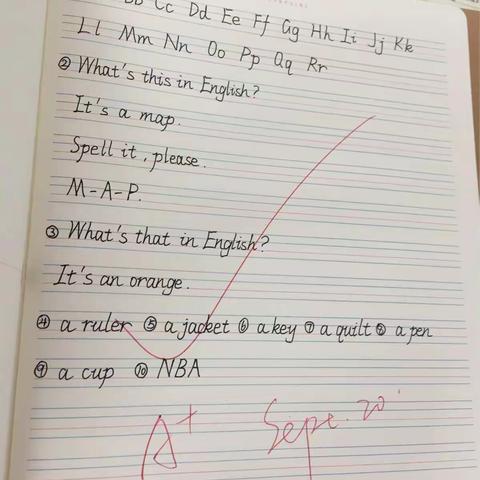 Cc Dd Ee Ff Gg Hh Ii Jj Kk
Ll Mm Nn Oo Pp Qq Rr
② What's this in English?
It's a map.
Spell it, please.
M-A-P.
③ What's that in English?
It's an orange.
④ a ruler ⑤ a jacket ⑥ a key ⑦ a quilt ⑧ a pen
⑨ a cup ⑩ NBA
A+ Sept. 20